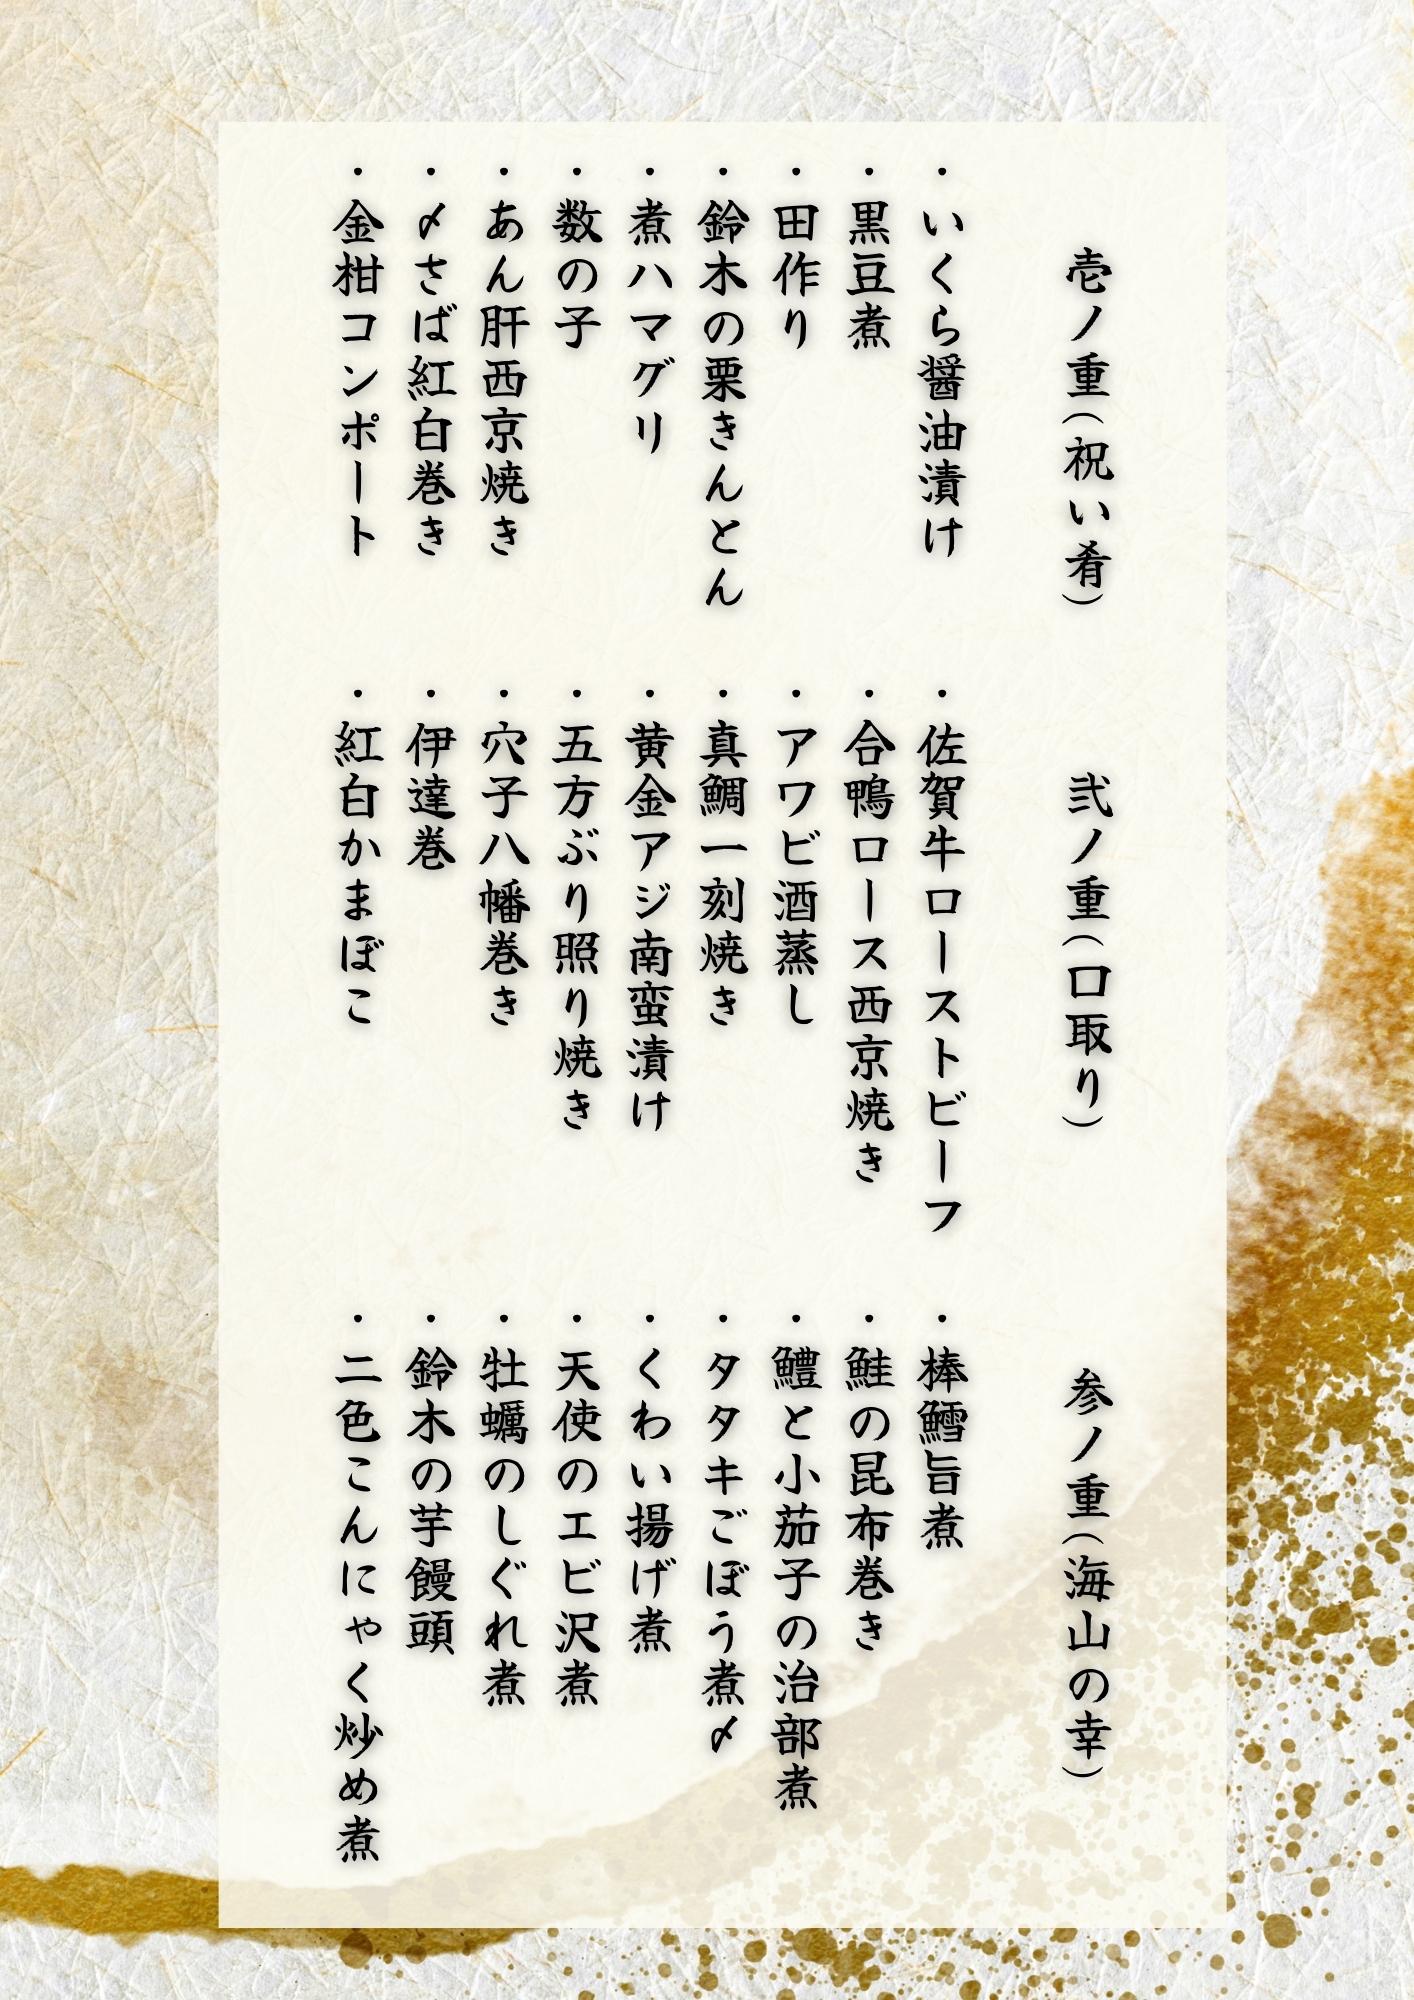 壱ノ重(祝い肴)
・いくら醤油漬け
・黒豆煮
・田作り
・鈴木の栗きんとん
・煮ハマグリ
・数の子
・あん肝西京焼き
・〆さば紅白巻き
・金柑コンポート
弐ノ重(口取り)
・佐賀牛ローストビーフ
・合鴨ロース西京焼き
・アワビ酒蒸し
・真鯛一刻焼き
・黄金アジ南蛮漬け
・五方ぶり照り焼き
・穴子八幡巻き
・伊達巻
・紅白かまぼこ
参ノ重(海山の幸)
・棒鱈旨煮
・鮭の昆布巻き
・鱧と小茄子の治部煮
・タタキごぼう煮〆
・くわい揚げ煮
・天使のエビ沢煮
・牡蠣のしぐれ煮
・鈴木の芋饅頭
・二色こんにゃく炒め煮